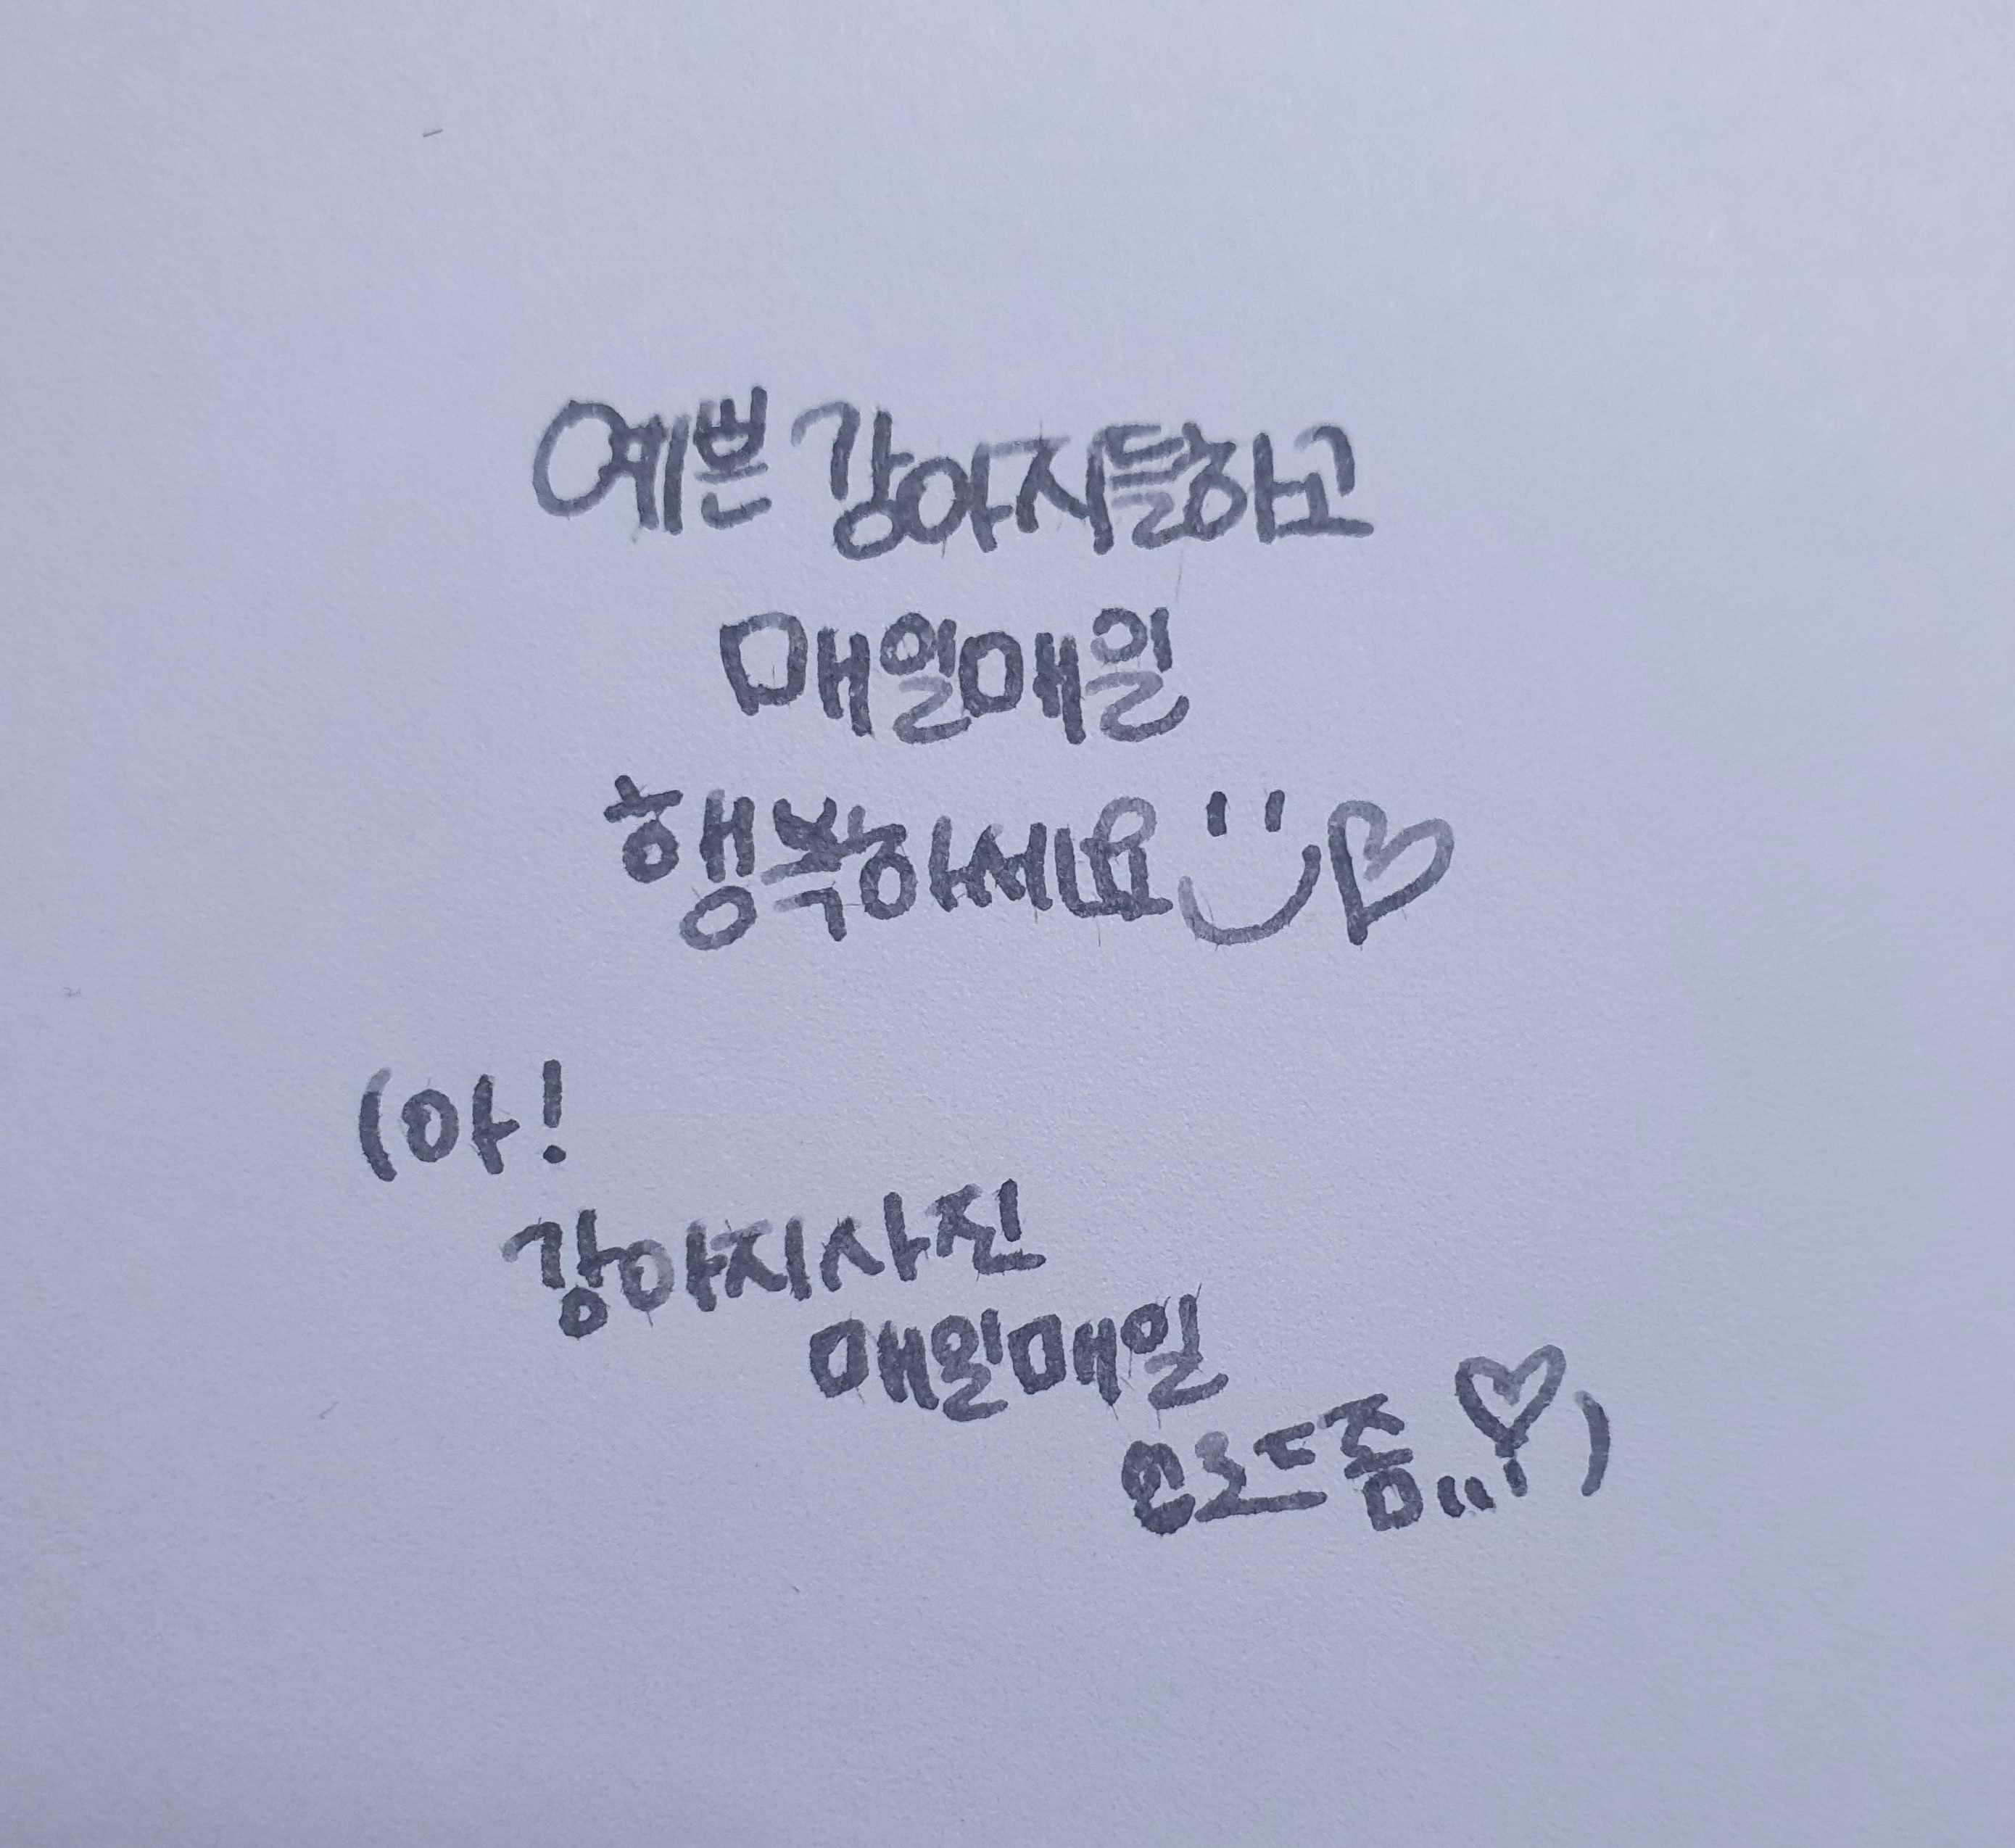 예쁜 강아지들하고
매일매일
행복하세요 :) ♡
(아!
강아지사진
매일매일
업로드좀...♡)